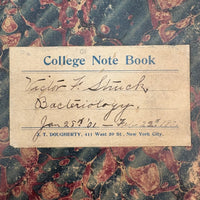 College Note Book
Victor F. Struck.
Bacteriology.
Jan 28th '01 –
J. T. DOUGHERTY, 411 West 59 St., New York City.